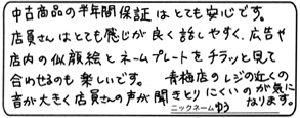 中古商品の半年間保証はとても安心です。
店員さんはとても感じが良く話しやすく、広告や
店内の似顔絵とネームプレートをチラッと見て
合わせるのも楽しいです。 青梅店のレジの近くの
音が大きく店員さんの声が聞きとりにくいのが気に
なります。
ニックネーム ゆう